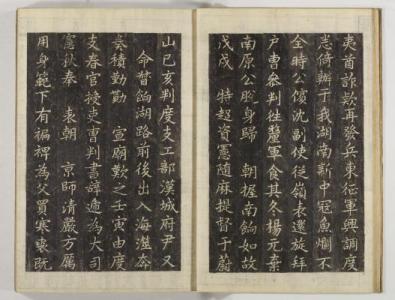 夷首詐欺再發兵東征軍興調度
悉倚辦于我湖南新中冠魚爛不
全時公儐沈副使從嶺表還旋拜
戶曹參判往釐軍食其冬楊元棄
南原公脫身歸 朝握南餉如故
戊戌 特超資憲隨麻提督于蔚
山己亥判度支工部漢城府尹又
命督餉湖路前後出入海澨奔
奏積勤勤 宣廟歎之壬寅由度
支春官授吏曹判書辭遞為大司
憲秋奉 表朝 京師清嚴方厲
用身範下有褊裨為父買寒㐮既